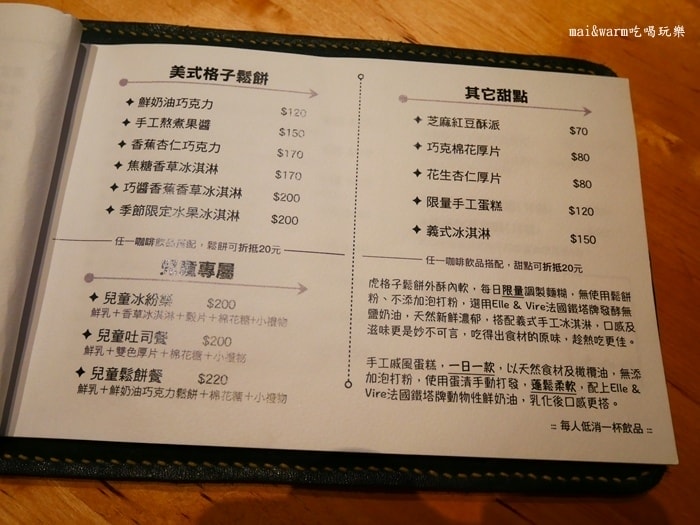 mai&warm吃喝玩樂
美式格子鬆餅
✦ 鮮奶油巧克力 $120
✦ 手工熬煮果醬 $150
✦ 香蕉杏仁巧克力 $170
✦ 焦糖香草冰淇淋 $170
✦ 巧醬香蕉香草冰淇淋 $200
✦ 季節限定水果冰淇淋 $200
任一咖啡飲品搭配，鬆餅可折抵20元
專屬
✦ 兒童冰紛樂 $200
鮮乳＋香草冰淇淋＋穀片＋棉花糖+小禮物
✦ 兒童吐司餐 $200
鮮乳＋雙色厚片＋棉花糖＋小禮物
✦ 兒童鬆餅餐 $220
鮮乳＋鮮奶油巧克力鬆餅＋棉花糖＋小禮物
其它甜點
✦ 芝麻紅豆酥派 $70
✦ 巧克棉花厚片 $80
✦ 花生杏仁厚片 $80
✦ 限量手工蛋糕 $120
✦ 義式冰淇淋 $150
任一咖啡飲品搭配，甜點可折抵20元
虎格子鬆餅外酥內軟，每日限量調製麵糊，無使用鬆餅
粉、不添加泡打粉，選用Elle & Vire法國鐵塔牌發酵無
鹽奶油，天然新鮮濃郁，搭配義式手工冰淇淋，口感及
滋味更是妙不可言，吃得出食材的原味，趁熱吃更佳。
手工戚風蛋糕，一日一款，以天然食材及橄欖油，無添
加泡打粉，使用蛋清手動打發，蓬鬆柔軟，配上Elle &
Vire法國鐵塔牌動物性鮮奶油，乳化後口感更搭。
:: 每人低消一杯飲品 ::